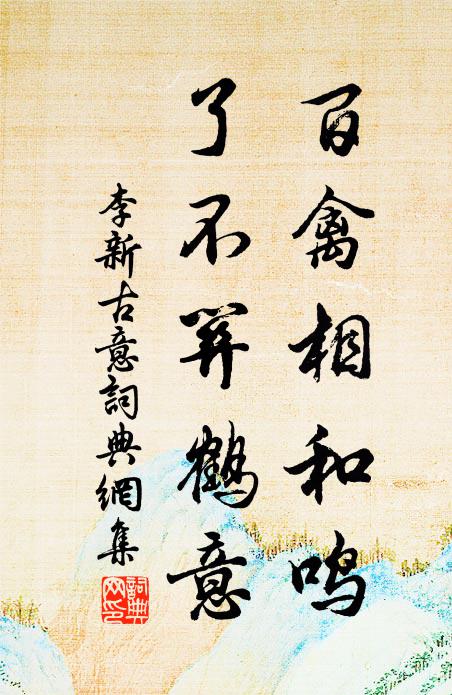 百禽相和鳴
了不關鶴意
李新古意詞典網集
詞典
网印